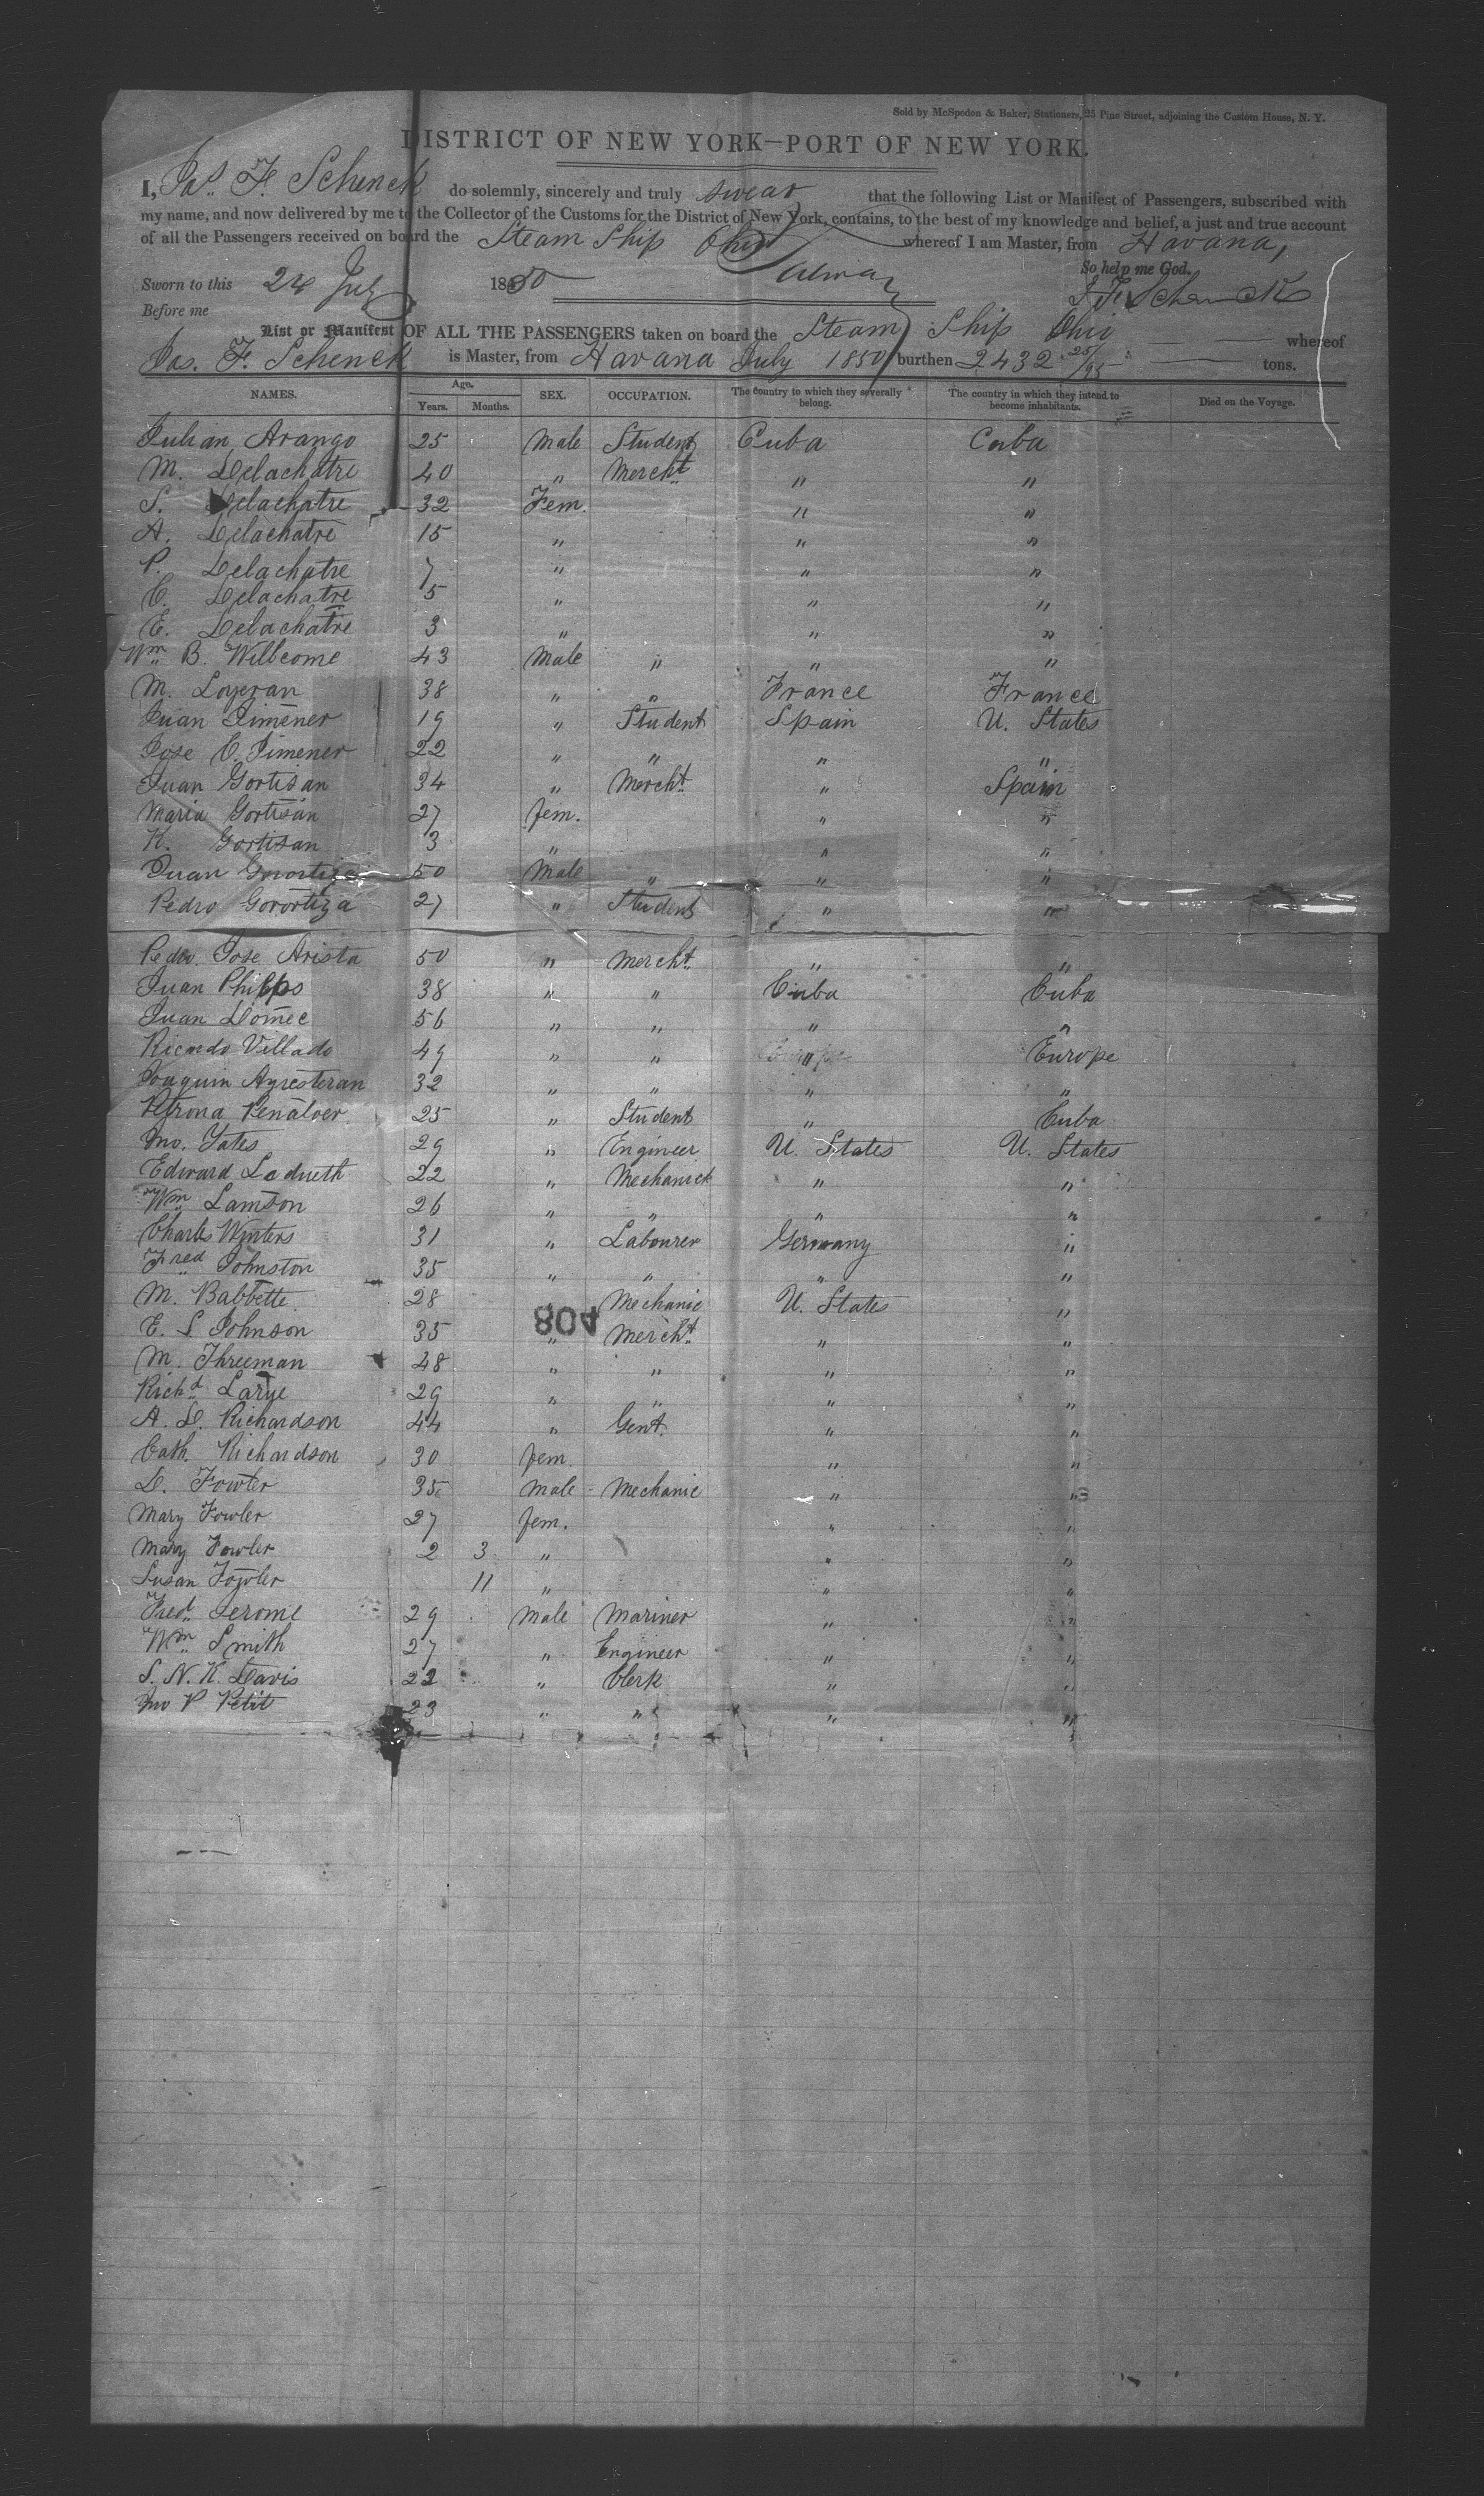 Sold by McSpedon & Baker, Stationers, 25 Pine Street, adjoining the Custom House, N. Y.
DISTRICT OF NEW YORK—PORT OF NEW YORK.
I, Jas. F. Schenck do solemnly, sincerely and truly swear that the following List or Manifest of Passengers, subscribed with
my name, and now delivered by me to the Collector of the Customs for the District of New York, contains, to the best of my knowledge and belief, a just and true account
of all the Passengers received on board the Steam Ship Ohio whereof I am Master, from Havana,
So help me God.
Sworn to this 24 July 1850 J. F. Schenck
Before me
List or Manifest OF ALL THE PASSENGERS taken on board the Steam Ship Ohio whereof
Jas. F. Schenck is Master, from Havana July 1850 burthen 2432 25/95 tons.
NAMES. Age. Years. Months. SEX. OCCUPATION. The country to which they severally belong. The country in which they intend to become inhabitants. Died on the Voyage.
Julian Arango 25 Male Student Cuba Cuba
M. Delachatre 40 " Mercht. " "
S. Delachatre 32 Fem. " "
A. Delachatre 15 " " "
P. Delachatre 7 " " "
C. Delachatre 5 " " "
E. Delachatre 3 " " "
Wm. B. Willcome 43 Male " " "
M. Loyeran 38 " " France France
Juan Jimener 19 " Student Spain U. States
Jose C. Jimener 22 " " " "
Juan Gortisan 34 " Mercht. " Spain
Maria Gortisan 27 fem. " "
K. Gortisan 3 " " "
Juan Gorortiza 50 Male " " "
Pedro Gorortiza 27 " Student " "
Pedro Jose Arista 50 " Mercht. " "
Juan Philps 38 " " Cuba Cuba
Juan Domec 56 " " " "
Ricardo Villado 49 " " " Europe
Joaquin Ayresteran 32 " " " "
Petrona Penalver 25 " Student " Cuba
Jno. Yates 29 " Engineer U. States U. States
Edward Ladueth 22 " Mechanick " "
Wm. Lamson 26 " " " "
Charls Winters 31 " Labourer Germany "
Fred Johnston 35 " " " "
M. Babbette 28 " Mechanic U. States "
804
E. S. Johnson 35 " Mercht. " "
M. Threeman 48 " " " "
Richd. Larye 29 " " " "
A. D. Richardson 44 " Gent. " "
Cath. Richardson 30 fem. " "
D. Fowler 35 Male Mechanic " "
Mary Fowler 27 fem. " "
Mary Fowler 2 3 " " "
Susan Fowler 11 " " "
Fredk. Jerome 29 Male Mariner " "
Wm. Smith 27 " Engineer " "
S. N. K. Davis 22 " Clerk " "
Jno P Petit 23 " " " "